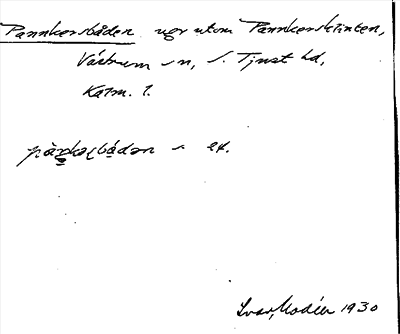 Pannkersbåden ugr utom Pannkersklinten,
Västrum sn, S. Tjust hd,
Kalm. l.
pàŋkəʂbádən ~ ex.
Ivar Modéer 1930